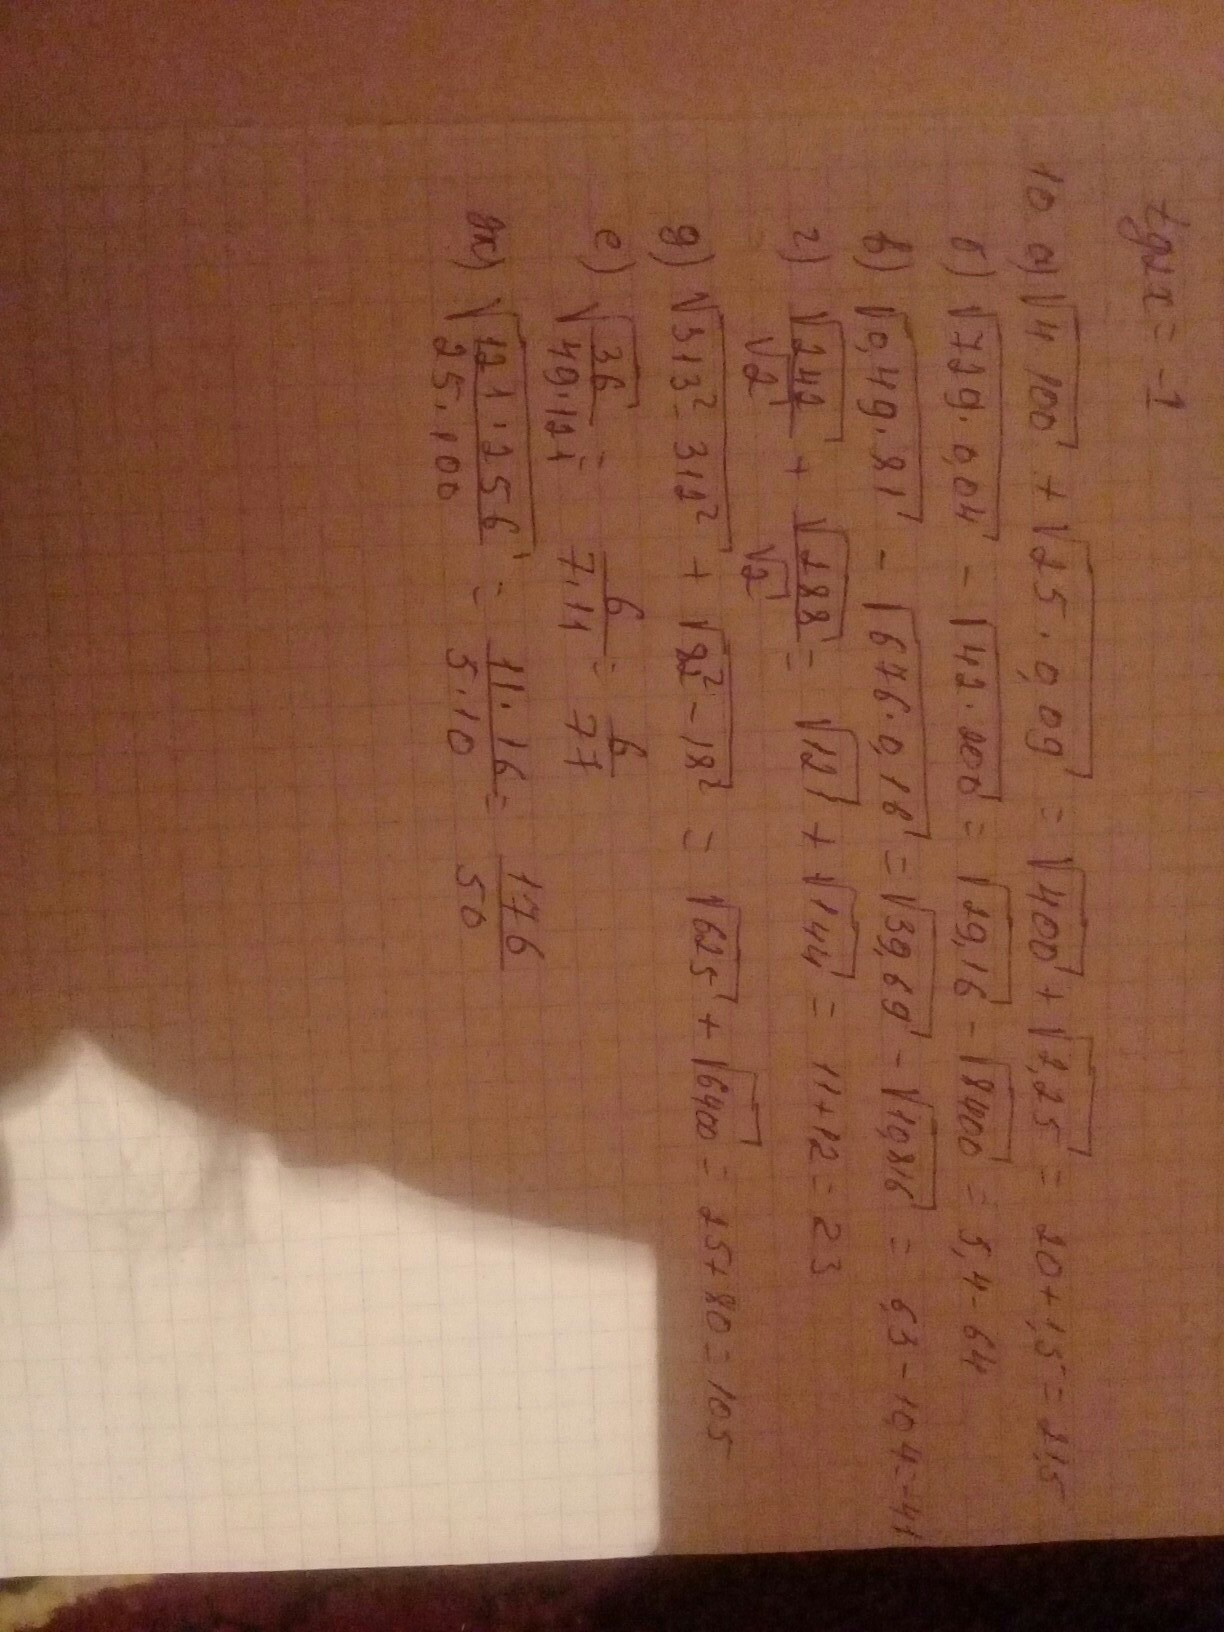 tg2x = -1
10. а) √4·100 + √25·0,09 = √400 + √2,25 = 20+1,5 = 21,5
б) √729·0,04 - √42·200 = √29,16 - √8400 = 5,4-64
в) √0,49·81 - √676·0,16 = √39,69 - √10,816 = 6,3-10,4=-41
г) √242/√2 + √288/√2 = √121 + √144 = 11+12=23
д) √313²-312² + √82²-18² = √625 + √6400 = 25+80=105
е) √36/49·121 = 6/7·11 = 6/77
ж) √121·256/25·100 = 11·16/5·10 = 176/50